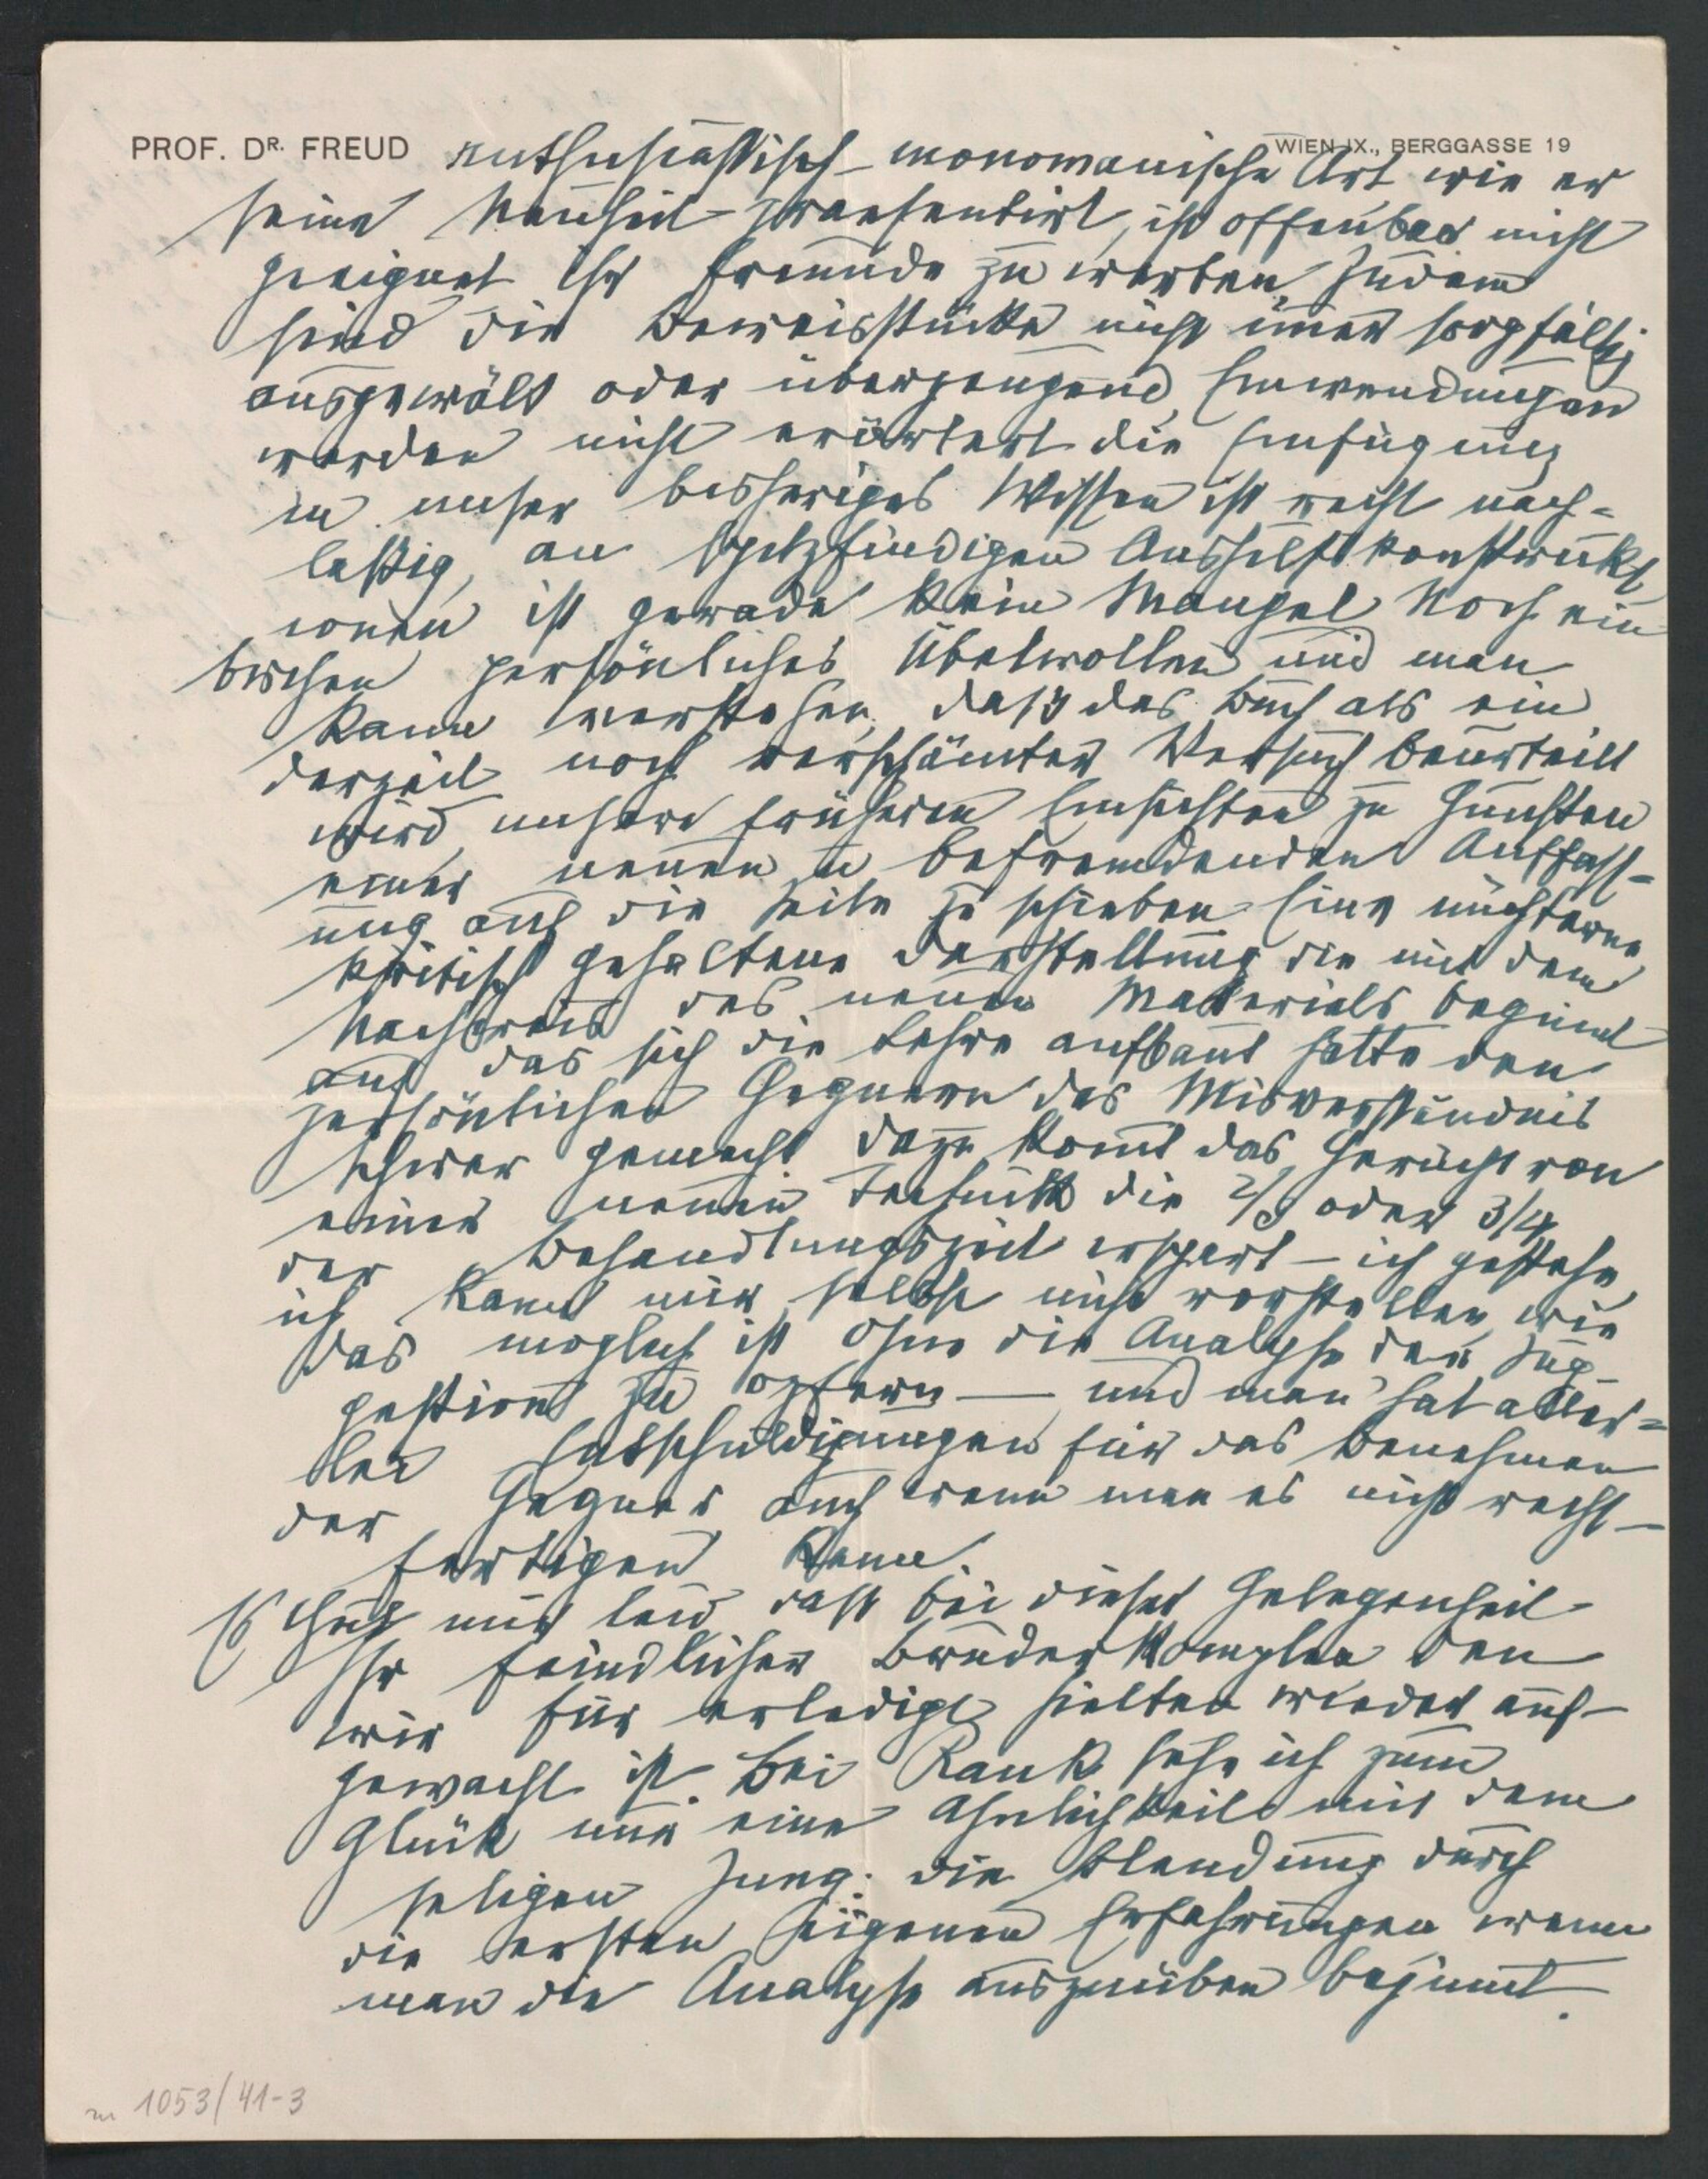 PROF. DR. FREUD
WIEN IX., BERGGASSE 19
enthusiastisch-monomanische Art wie er
seine Neuheit praesentirt, ist offenbar nicht
geeignet ihr Freunde zu werben. Zudem
sind die Beweisstücke nicht immer sorgfältig
ausgewält oder überzeugend, Einwendungen
werden nicht erörtert die Einfügung
in unser bisheriges Wissen ist recht nach-
lässig, an spitzfindigen Aushilfskonstrukt
ionen ist gerade kein Mangel. Noch ein
bischen persönliches Übelwollen und man
kann verstehen, daß das Buch als ein
derzeit noch verschämter Versuch beurteilt
wird unsere früheren Einsichten zu Gunsten
einer neuen u befremdenden Auffass-
ung auf die Seite zu schieben. Eine nüchterne
kritisch gehaltene Darstellung die mit dem
Nachweis des neuen Materials beginnt
auf das sich die Lehre aufbaut hätte den
persönlichen Gegnern das Misverständnis
schwer gemacht. Dazu kommt das Gerücht von
einer neuen Technik die 2/3 oder 3/4
der Behandlungszeit erspart – ich gestehe,
ich kann mir selbst nicht vorstellen wie
das möglich ist ohne die Analyse der Sug-
gestion zu opfern — und man hat aller-
lei Entschuldigungen für das Benehmen
der Gegner auch wenn man es nicht recht-
fertigen kann.
Es thut mir leid daß bei dieser Gelegenheit
Ihr feindlicher Bruderkomplex den
wir für erledigt hielten wieder auf-
gewacht ist. Bei Rank sehe ich zum
Glück nur eine Ähnlichkeit mit dem
seligen Jung: die Blendung durch
die ersten eigenen Erfahrungen wenn
man die Analyse auszuüben beginnt.
zu 1053/41-3